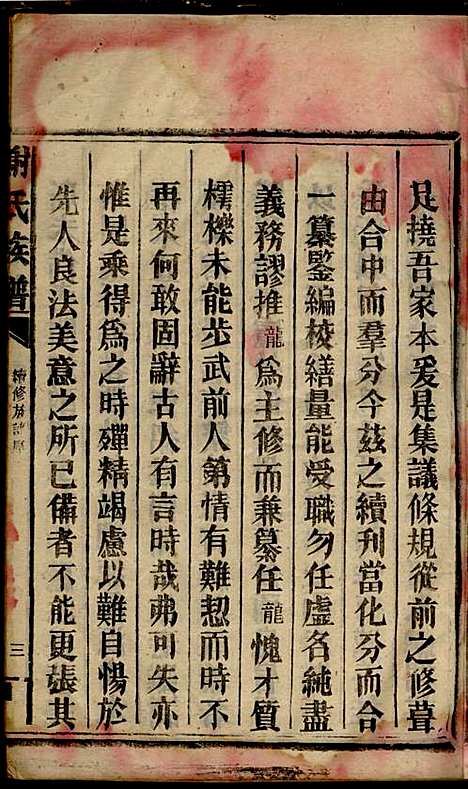 足撓吾家本爰是集議條規從前之修葺
由合中而羣分今茲之續刊當化分而合
一纂鑒編校繕量能受職勿任虛名純盡
義務謬推龍為主修而兼纂任龍愧才質
樗櫟未能步武前人第情有難恝而時不
再來何敢固辭古人有言時哉弗可失亦
惟是乘得為之時殫精竭慮以難自惕於
先人良法美意之所已備者不能更張其
謝氏族譜
修族譜序
三